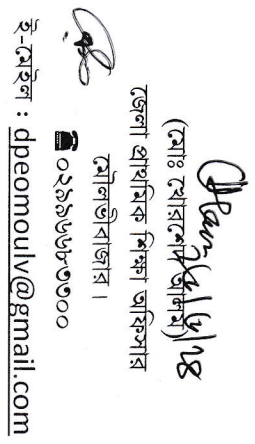 (মোঃ খোরশেদ আলম)
জেলা প্রাথমিক শিক্ষা অফিসার
মৌলভীবাজার।
☎ ০২৯৯৬৬৮৩০০০
ই-মেইল : dpeomoulv@gmail.com